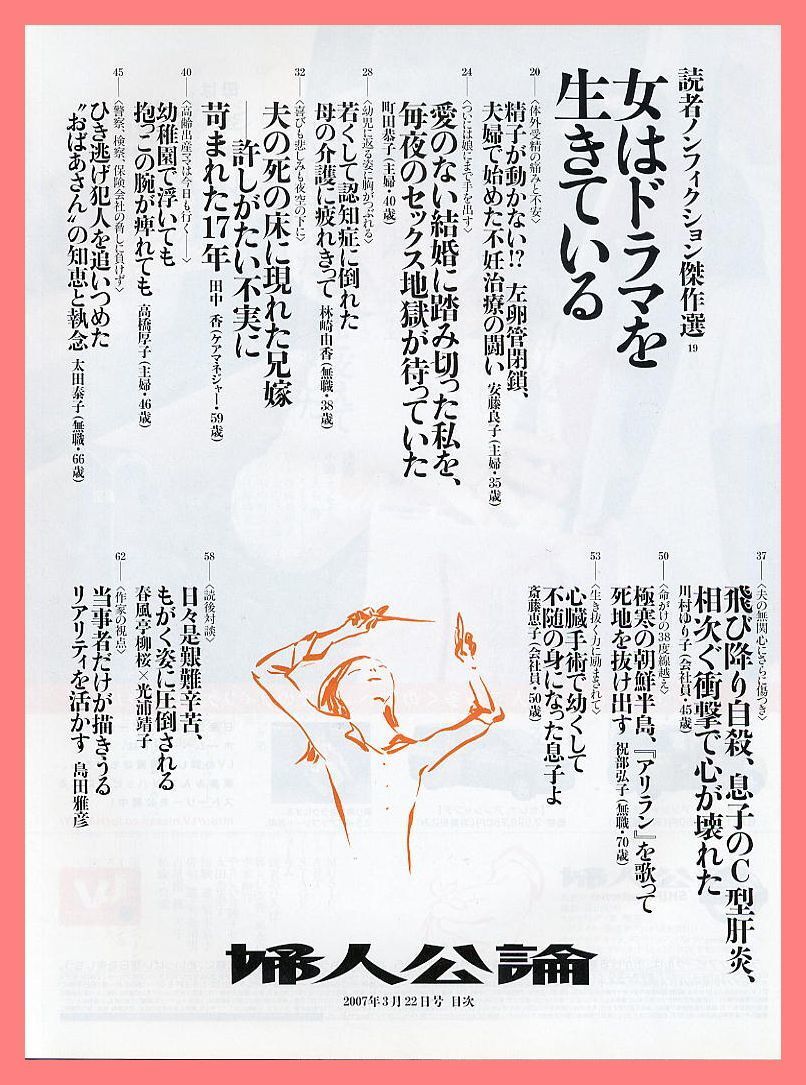 読者ノンフィクション傑作選 19
女はドラマを
生きている
20
〈体外受精の痛みと不安〉
精子が動かない!? 左卵管閉鎖、
夫婦で始めた不妊治療の闘い 安藤良子(主婦・35歳)
24
〈ついには娘にまで手を出す〉
愛のない結婚に踏み切った私を、
毎夜のセックス地獄が待っていた
町田恭子(主婦・40歳)
28
〈幼児に返る姿に胸がつぶれる〉
若くして認知症に倒れた
母の介護に疲れきって 林崎由香(無職・38歳)
32
〈喜びも悲しみも夜空の下に〉
夫の死の床に現れた兄嫁
――許しがたい不実に
苛まれた17年 田中 香(ケアマネジャー・59歳)
40
〈高齢出産ママは今日も行く――〉
幼稚園で浮いても
抱っこの腕が痺れても 高橋厚子(主婦・46歳)
45
〈警察、検察、保険会社の脅しに負けず〉
ひき逃げ犯人を追いつめた
〝おばあさん〟の知恵と執念 太田泰子(無職・66歳)
37
〈夫の無関心にさらに傷つき〉
飛び降り自殺、息子のC型肝炎、
相次ぐ衝撃で心が壊れた
川村ゆり子(会社員・45歳)
50
〈命がけの38度線越え〉
極寒の朝鮮半島、『アリラン』を歌って
死地を抜け出す 祝部弘子(無職・70歳)
53
〈生き抜く力に励まされて〉
心臓手術で幼くして
不随の身になった息子よ
斎藤恵子(会社員・50歳)
58
〈読後対談〉
日々是艱難辛苦、
もがく姿に圧倒される
春風亭柳桜×光浦靖子
62
〈作家の視点〉
当事者だけが描きうる
リアリティを活かす 島田雅彦
婦人公論
2007年3月22日号 目次